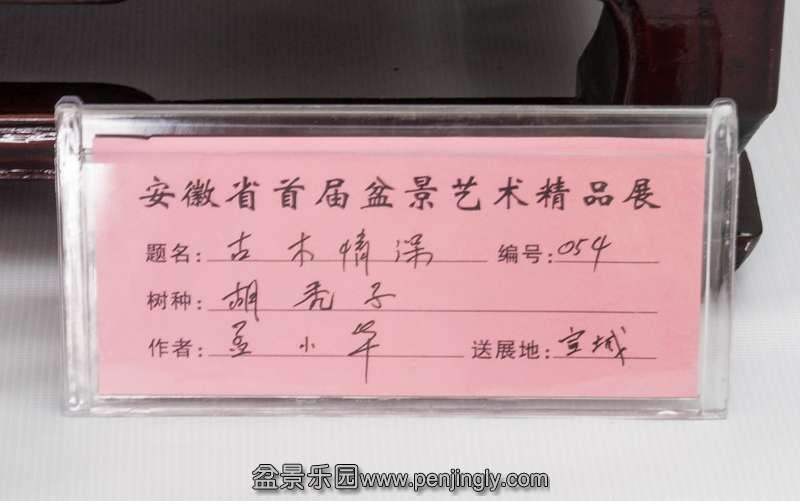 安徽省首届盆景艺术精品展
题名: 古木情深 编号: 054
树种: 胡秃子
作者: 孟小军 送展地: 宣城
盆景乐园www.penjingly.com